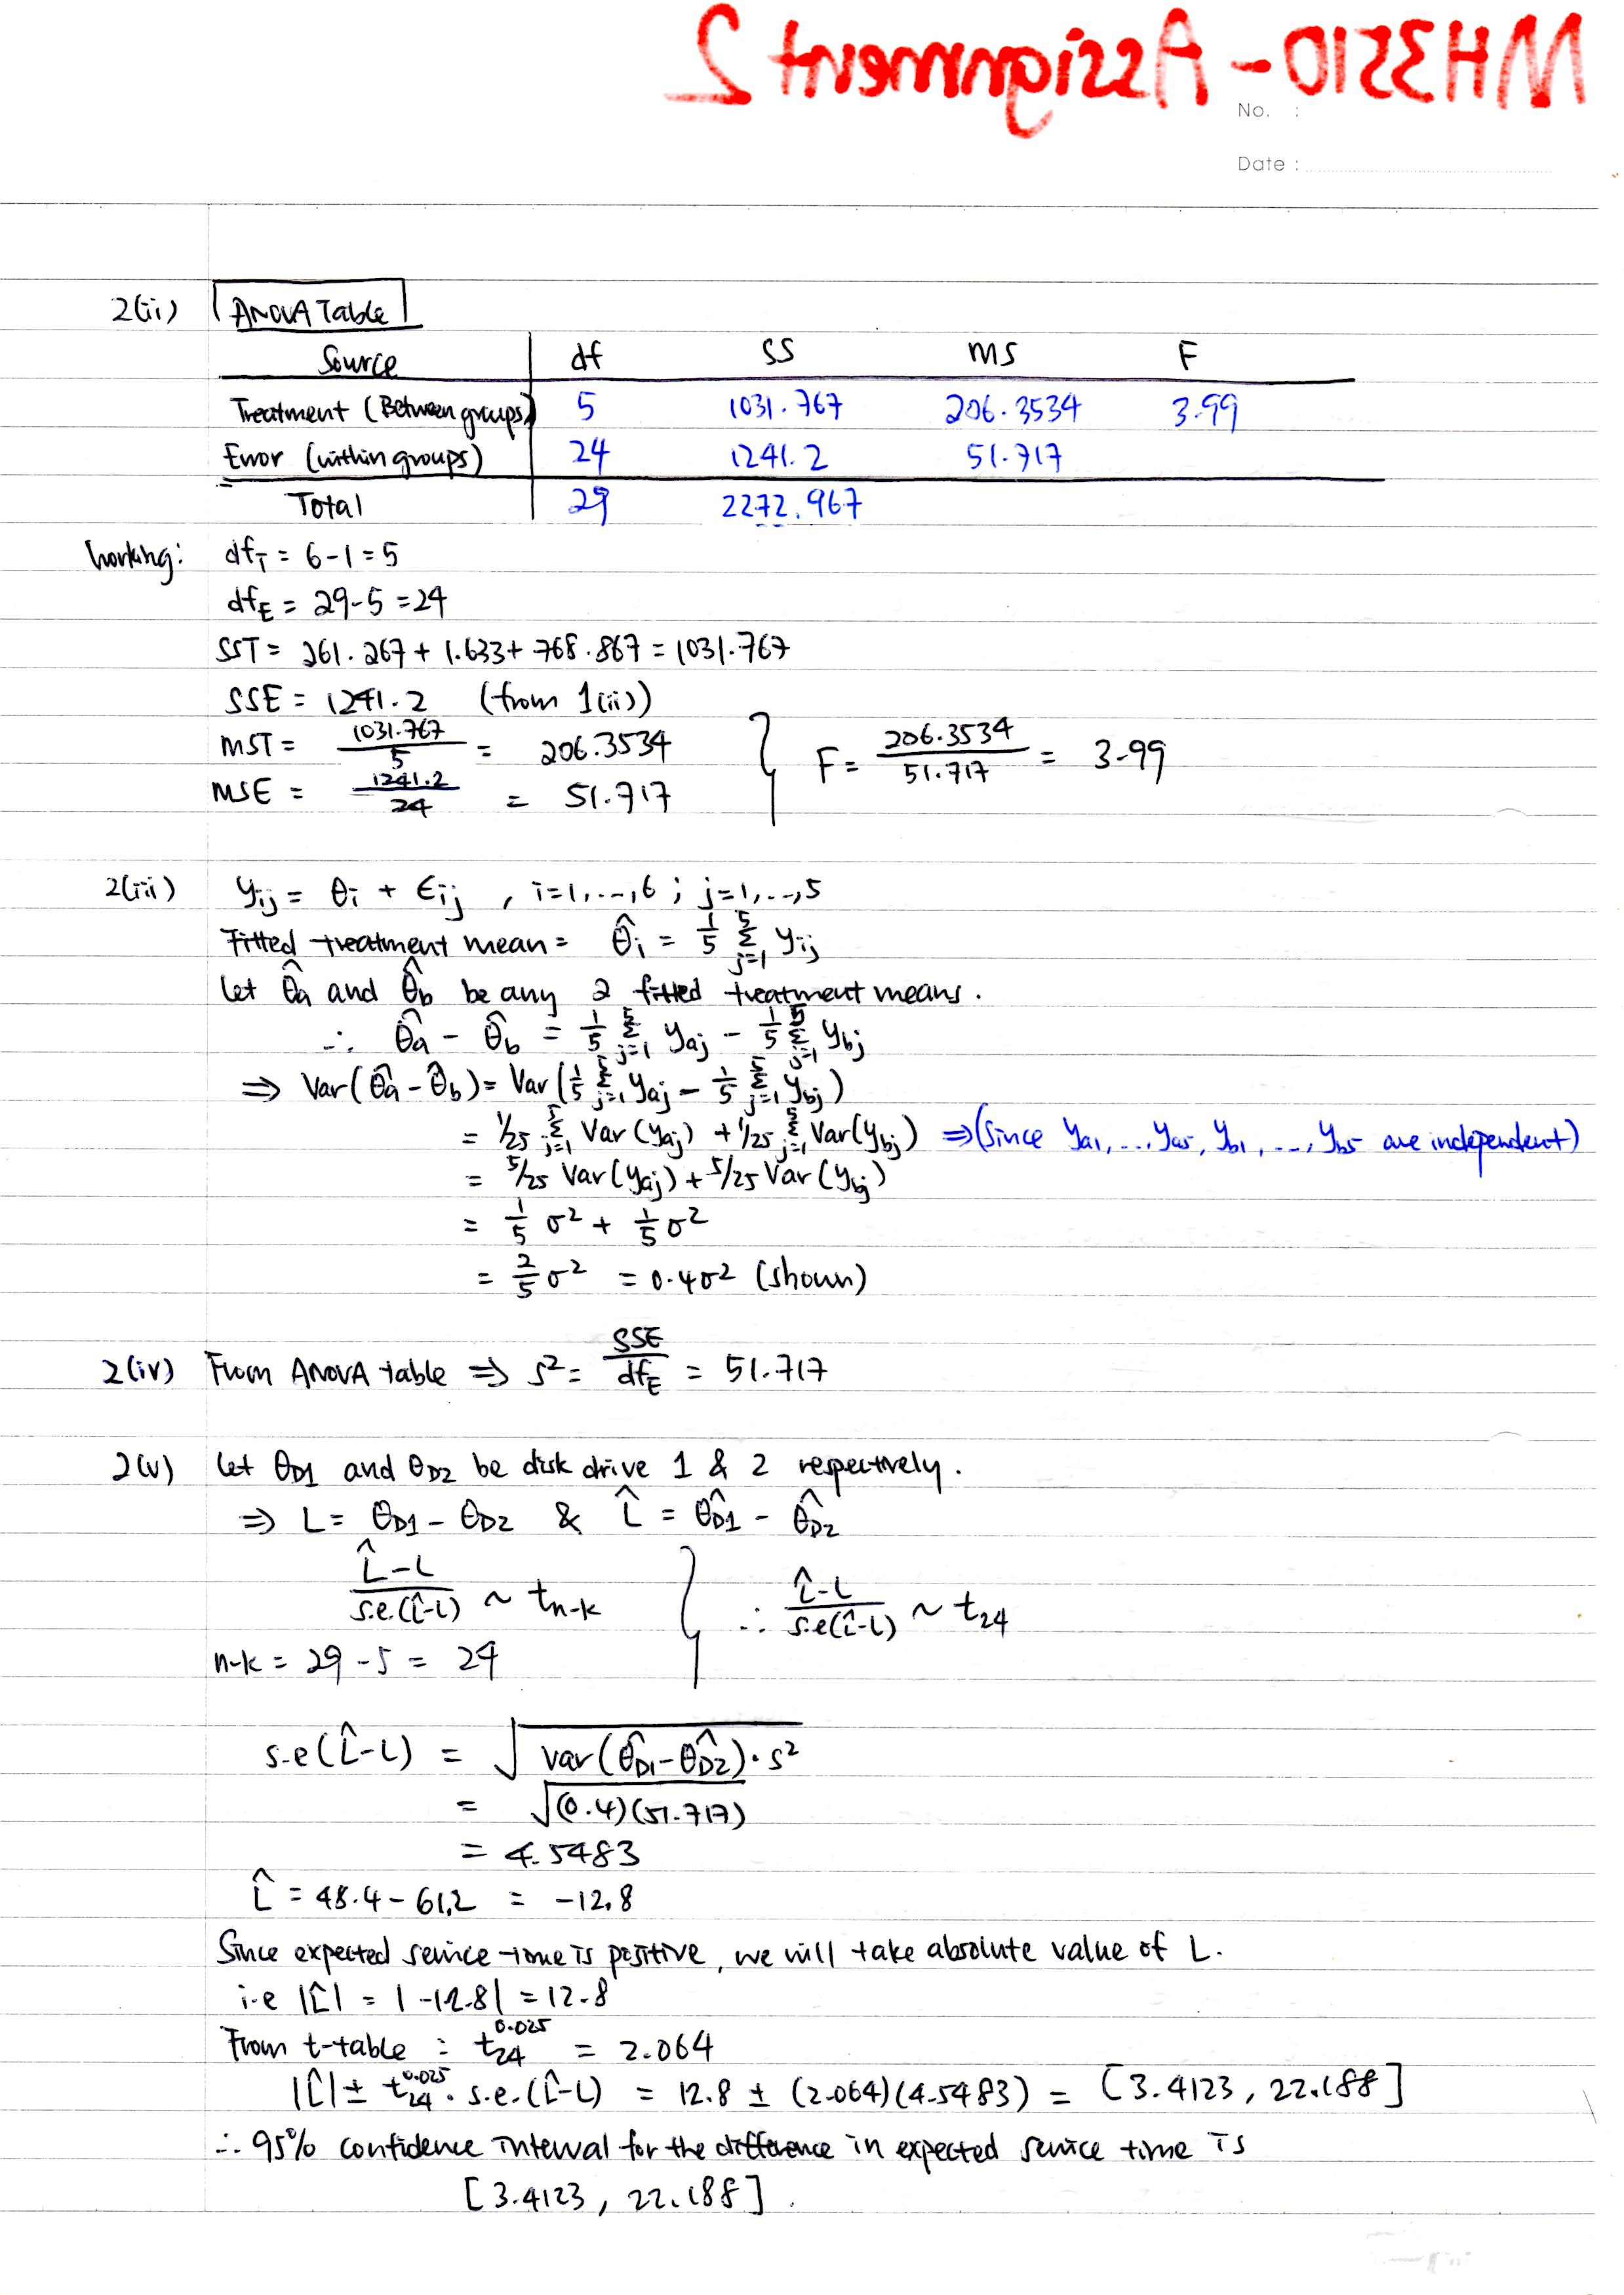 MH3510 - Assignment 2
No. :
Date :
2(ii) ANOVA Table
Source df SS MS F
Treatment (Between groups) 5 1031.767 206.3534 3.99
Error (within groups) 24 1241.2 51.717
Total 29 2272.967
Working: df_T = 6-1 = 5
df_E = 29-5 = 24
SST = 261.267 + 1.633 + 768.867 = 1031.767
SSE = 1241.2 (from 1(ii))
MST = 1031.767/5 = 206.3534
MSE = 1241.2/24 = 51.717 } F = 206.3534/51.717 = 3.99
2(iii) y_ij = θ_i + ε_ij , i=1,...,6 ; j=1,...,5
Fitted treatment mean = θ̂_i = 1/5 Σ_{j=1}^5 y_ij
Let θ̂_a and θ̂_b be any 2 fitted treatment means.
∴ θ̂_a - θ̂_b = 1/5 Σ_{j=1}^5 y_aj - 1/5 Σ_{j=1}^5 y_bj
⇒ Var(θ̂_a - θ̂_b) = Var(1/5 Σ_{j=1}^5 y_aj - 1/5 Σ_{j=1}^5 y_bj)
= 1/25 Σ_{j=1}^5 Var(y_aj) + 1/25 Σ_{j=1}^5 Var(y_bj) ⇒ (since y_a1, ... y_a5, y_b1, ..., y_b5 are independent)
= 5/25 Var(y_aj) + 5/25 Var(y_bj)
= 1/5 σ² + 1/5 σ²
= 2/5 σ² = 0.4σ² (shown)
2(iv) From ANOVA table ⇒ s² = SSE/df_E = 51.717
2(v) Let θ_D1 and θ_D2 be disk drive 1 & 2 respectively.
⇒ L = θ_D1 - θ_D2 & L̂ = θ̂_D1 - θ̂_D2
(L̂-L)/s.e.(L̂-L) ~ t_n-k } ∴ (L̂-L)/s.e(L̂-L) ~ t_24
n-k = 29-5 = 24
s.e(L̂-L) = √(var(θ̂_D1 - θ̂_D2)·s²)
= √((0.4)(51.717))
= 4.5483
L̂ = 48.4 - 61.2 = -12.8
Since expected service time is positive, we will take absolute value of L.
i.e |L̂| = |-12.8| = 12.8
From t-table : t_24^0.025 = 2.064
|L̂| ± t_24^0.025 · s.e.(L̂-L) = 12.8 ± (2.064)(4.5483) = [3.4123, 22.188]
∴ 95% confidence interval for the difference in expected service time is
[3.4123, 22.188].